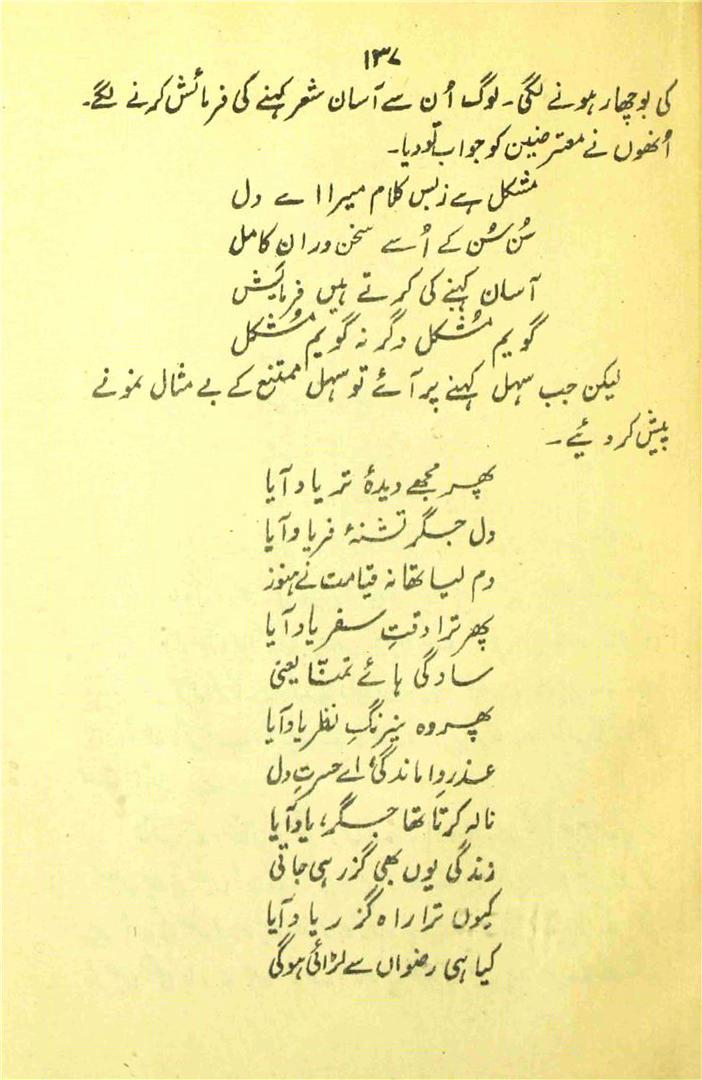 ۱۳۷
کی بوچھار ہونے لگی۔ لوگ اُن سے آسان شعر کہنے کی فرمائش کرنے لگے۔
اُنھوں نے معترضین کو جواب تو دیا۔
مشکل ہے زبس کلام میرا اے دل
سُن سُن کے اُسے سخن ورانِ کامل
آسان کہنے کی کرتے ہیں فرمایٔش
گویم مُشکل وگر نہ گویم مُشکل
لیکن جب سہل کہنے پر آئے تو سہل ممتنع کے بے مثال نمونے
پیش کر دیئے۔
پھر مجھے دیدۂ تر یاد آیا
دل جگر تشنۂ فریاد آیا
دم لیا تھا نہ قیامت نے ہنوز
پھر ترا وقتِ سفر یاد آیا
سادگی ہائے تمنّا یعنی
پھر وہ نیرنگِ نظر یاد آیا
عذرِ واماندگیٔ اے حسرتِ دل
نالہ کرتا تھا جگر، یاد آیا
زندگی یوں بھی گزر ہی جاتی
کیوں ترا راہ گزر یاد آیا
کیا ہی رضواں سے لڑائی ہوگی